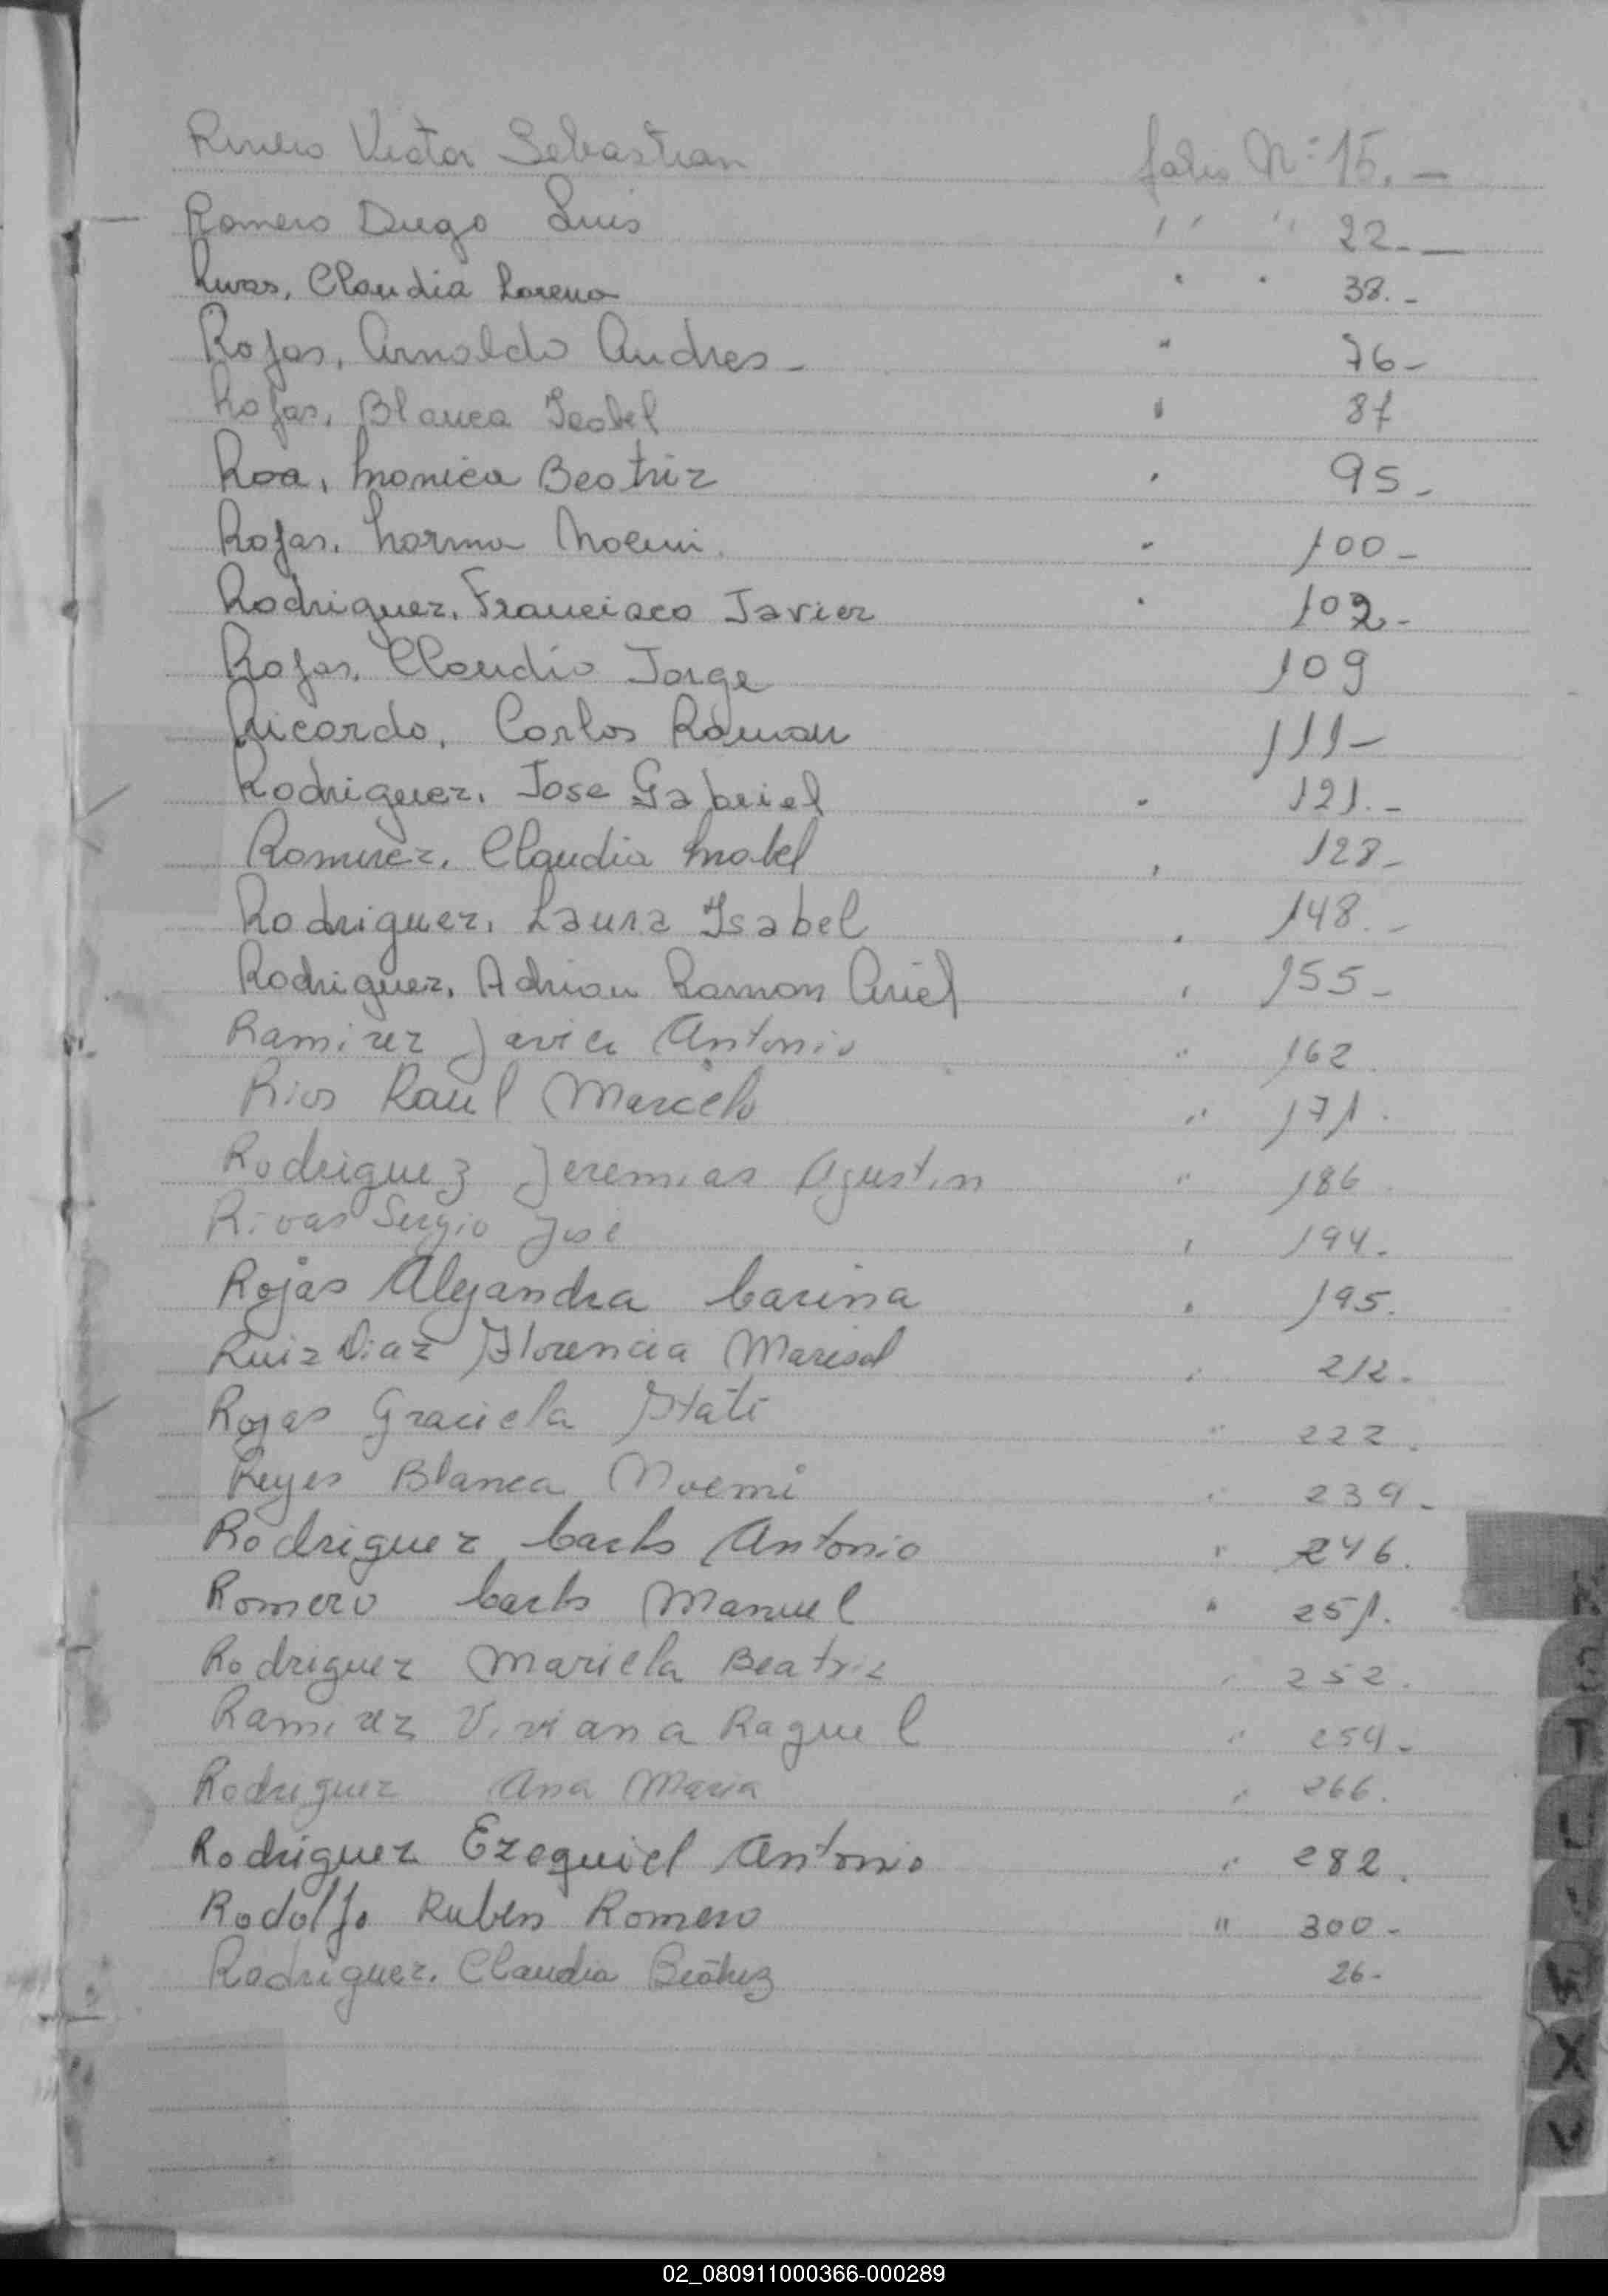 Rivero Victor Sebastian folio Nº 15. —
Romero Diego Luis " " 22. —
Rivas, Claudia Lorena " " 38. -
Rojas, Arnaldo Andres - " 76 -
Rojas, Blanca Isabel " 87
Roa, Monica Beatriz " 95 -
Rojas, Norma Noemi. " 100 -
Rodriguez, Francisco Javier " 102 -
Rojas, Claudio Jorge 109
Ricardo, Carlos Ramon 111 -
Rodriguez, Jose Gabriel " 121. -
Ramirez, Claudia Mabel " 128 -
Rodriguez, Laura Isabel " 148. -
Rodriguez, Adrian Ramon Ariel " 155 -
Ramirez Javier Antonio " 162.
Rios Raul Marcelo " 171.
Rodriguez Jeremias Agustin " 186.
Rivas Sergio José " 194.
Rojas Alejandra Carina " 195.
Ruiz Diaz Florencia Marisol " 212.
Rojas Graciela Itati " 222.
Reyes Blanca Noemi " 239 -
Rodriguez Carlos Antonio " 246.
Romero Carlos Manuel " 251.
Rodriguez Mariela Beatriz " 252.
Ramirez Viviana Raquel " 254 -
Rodriguez Ana Maria " 266.
Rodriguez Ezequiel Antonio " 282.
Rodolfo Ruben Romero " 300 -
Rodriguez, Claudia Beatriz 26 -
T
U
X
02_080911000366-000289